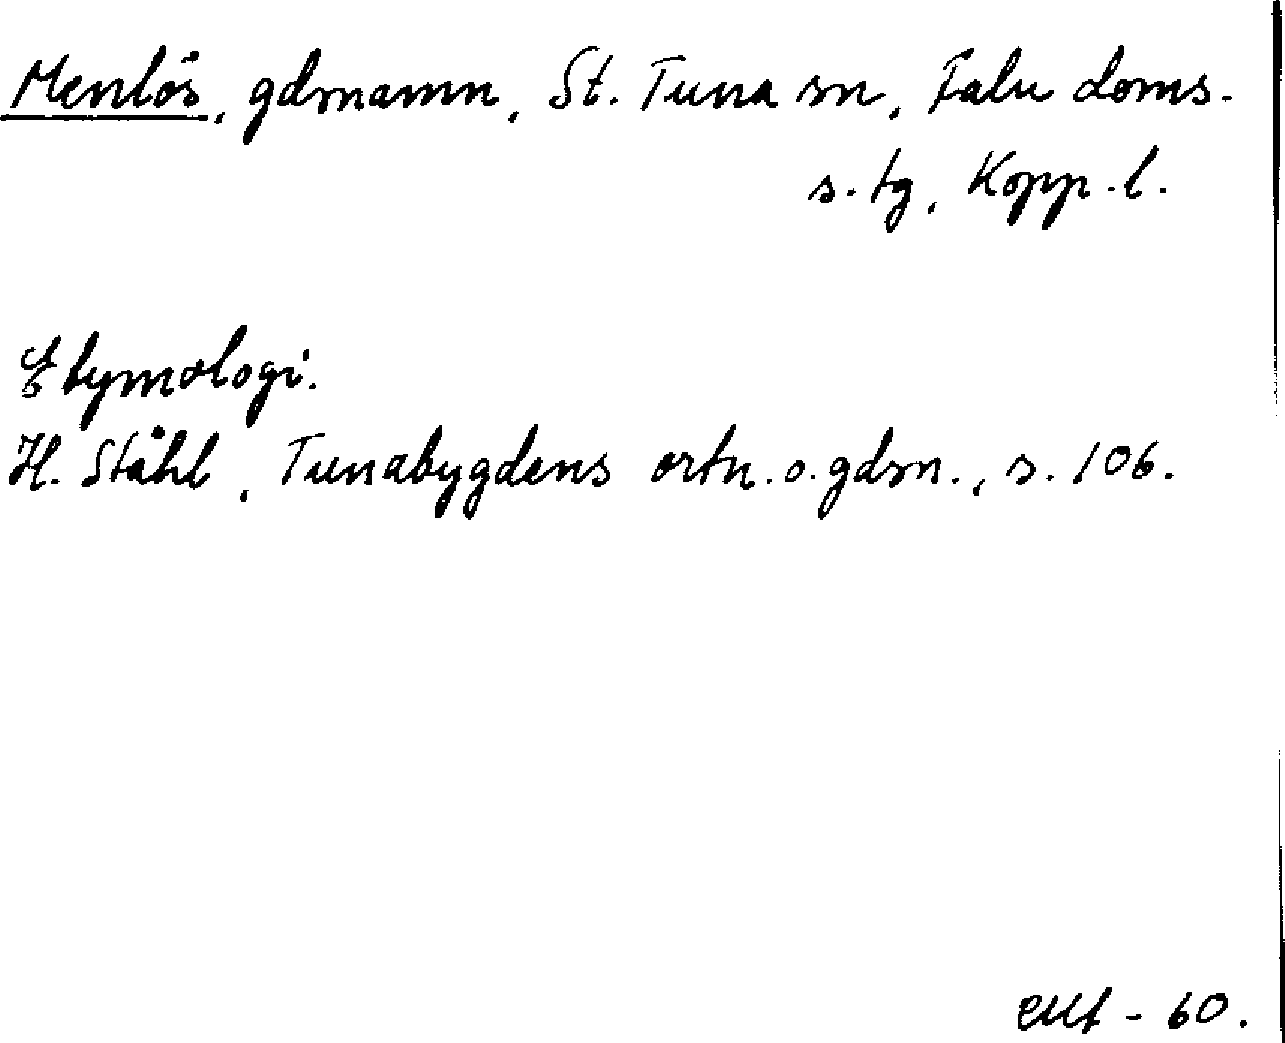 Menlös, gdrnamn, St. Tuna sn, Falu doms.
s. tg, Kopp. l.
Etymologi.
H. Ståhl, Tunabygdens ortn. o. gdrn., s. 106.
- 60.